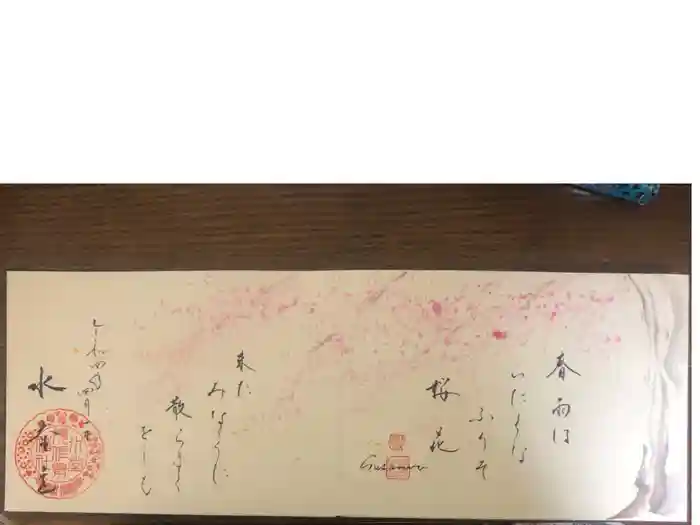 春雨は
いたくな
ふりそ
桜花
未だ
みなくに
散らまく
をしも
令和四年四月
水